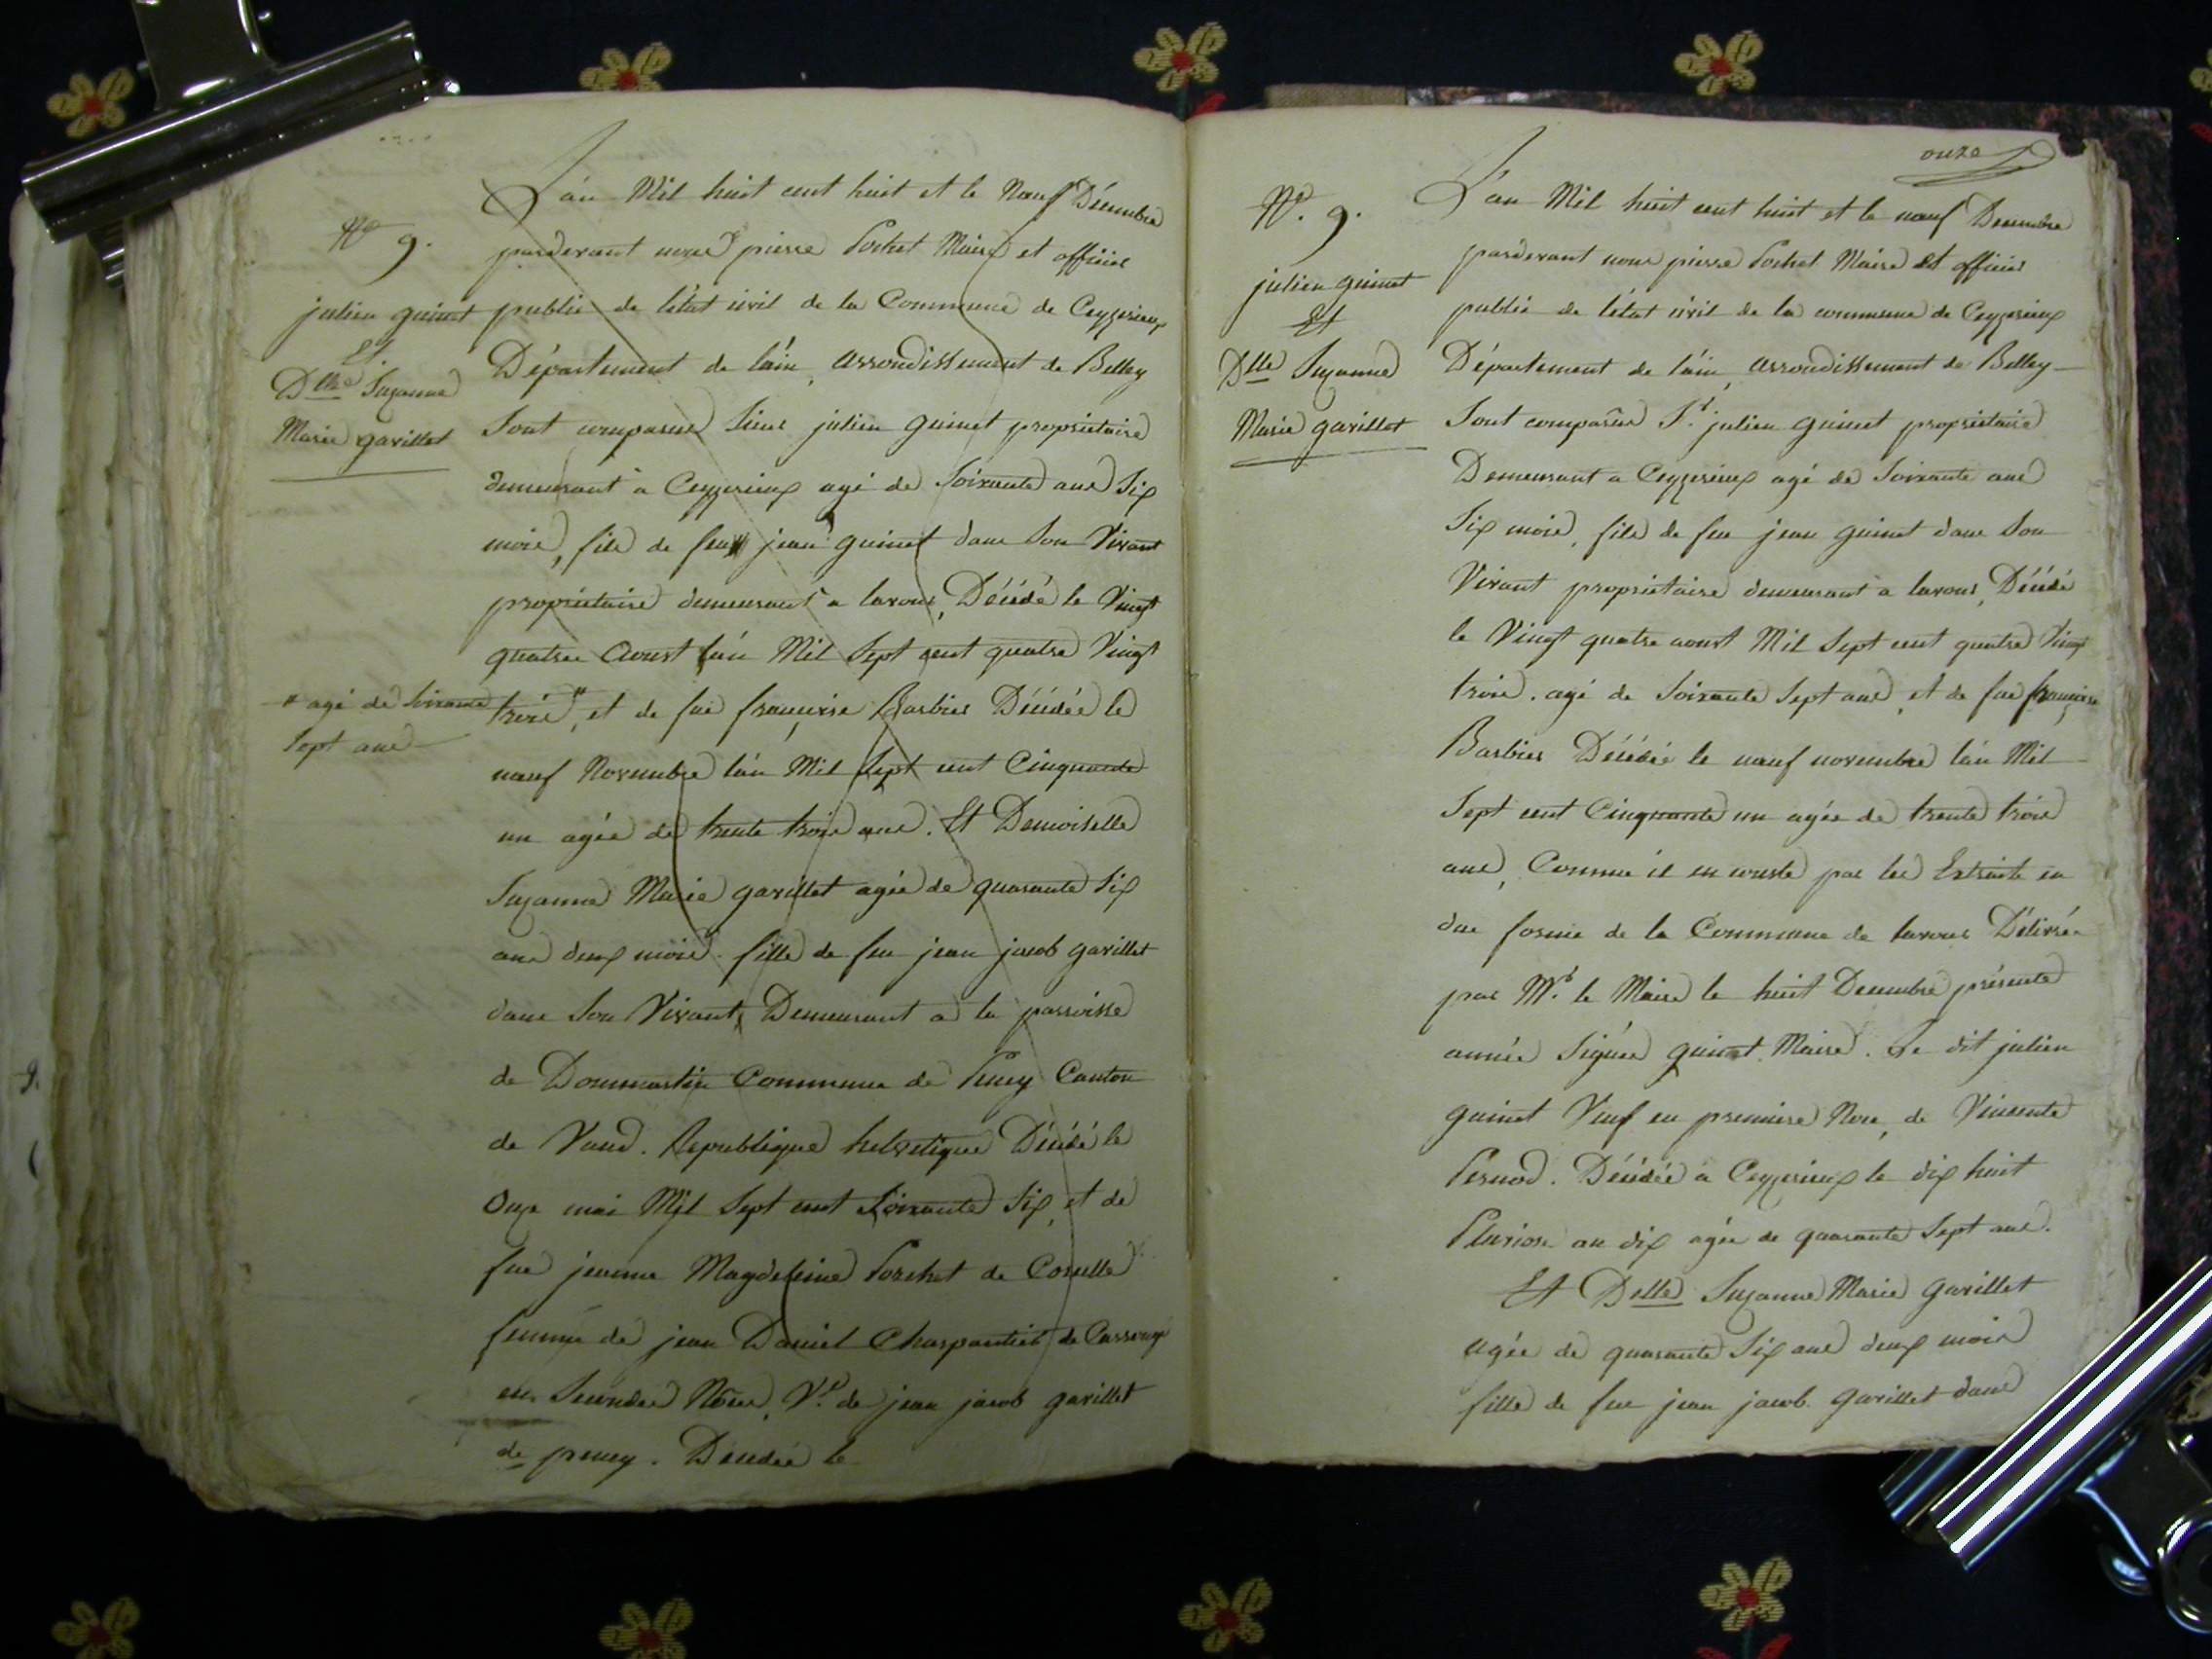 N.o 9.
julien guinet
Et.
Dlle Suzanne
Marie gavillet
L'an Mil huit cent huit et le Neuf Décembre
pardevant nous pierre Pochet Maire et officier
public de l'état civil de la Commune de Ceyzerieux
Département de l'ain, arrondissement de Belley
Sont comparus Sieur julien guinet propriétaire
demeurant à Ceyzerieux agé de Soixante ans Six
mois, fils de feu jean guinet dans Son Vivant
propriétaire demeurant a lavour, Décédé le Vingt
quatre Aoust l'an Mil Sept cent quatre Vingt
trois", et de fue françoise Barbier Décédée le
" agé de soixante
Sept ans
neuf Novembre l'an Mil Sept cent Cinquante
un agée de trente trois ans. Et Demoiselle
Suzanne Marie gavillet agée de quarante Six
ans deux mois. fille de feu jean jacob gavillet
dans Son Vivant, Demeurant a la parroisse
de Dommartin Commune de Peney Canton
de Vaud. Republique helvetique Décédé le
Onze mai Mil Sept cent Soixante Six, et de
fue jeanne Magdeleine Porchet de Corcelle
femme de jean Daniel Charpantier de
en Secondes Nôces, V.e de jean jacob gavillet
de peney. Décédée le
onze
N.o 9.
julien guinet
Et
Dlle Suzanne
Marie gavillet
L'an Mil huit cent huit et le neuf Decembre
pardevant nous pierre Pochet Maire et officier
public de l'état civil de la commune de Ceyzerieux
Département de l'ain, arrondissement de Belley
Sont comparus S.r julien guinet propriétaire
Demeurant a Ceyzerieux agé de Soixante ans
Six mois, fils de feu jean guinet dans Son
Vivant propriétaire demeurant a lavour, Décédé
le Vingt quatre aoust Mil Sept cent quatre Vingt
trois. agé de Soixante Sept ans, et de fue françoise
Barbier Décédée le neuf novembre l'an Mil
Sept cent Cinquante un agée de trente trois
ans, Comme il en conste par les Extraits en
due forme de la Commune de lavour Délivrés
par M.r le Maire le huit Decembre présente
année Signés guinet Maire. Le dit julien
guinet Veuf en premiere Noce, de Vincente
Pernod. Décédée à Ceyzerieux le dix huit
Pluviose an dix agée de quarante Sept ans.
Et Delle Suzanne Marie gavillet
agée de quarante Six ans deux mois
fille de feu jean jacob gavillet dans